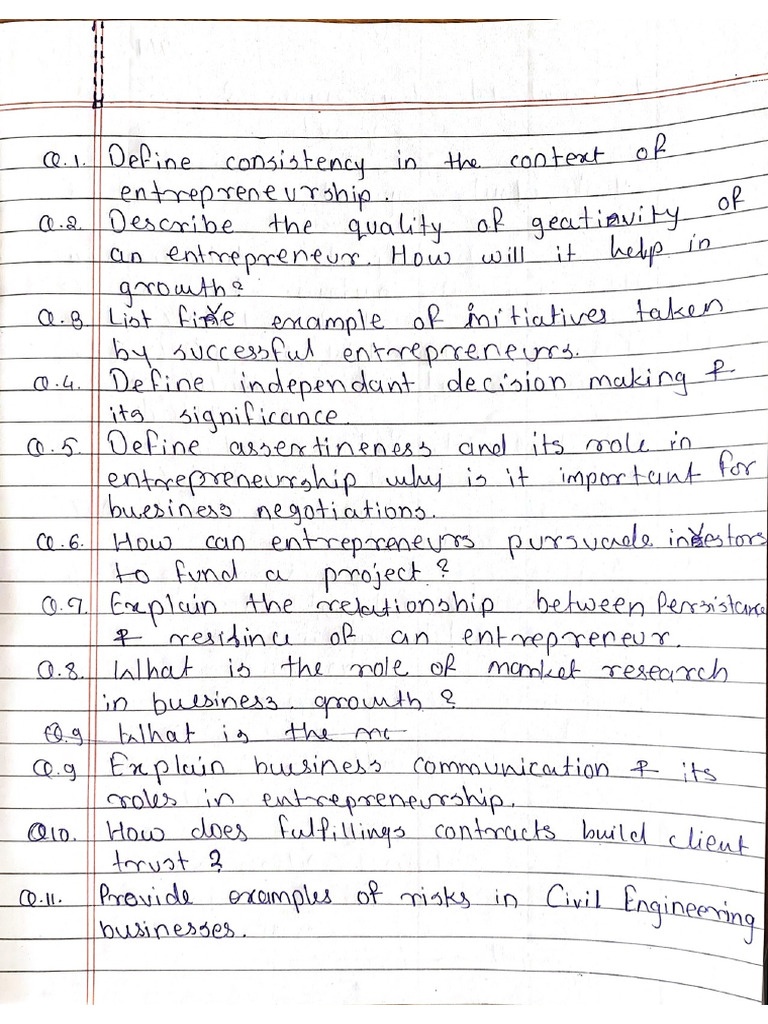 Q.1. Define consistency in the context of
entrepreneurship.
Q.2. Describe the quality of geatinvity of
an entrepreneur. How will it help in
growth?
Q.3. List five example of initiatives taken
by successful entrepreneurs.
Q.4. Define independant decision making &
its significance.
Q.5. Define assertineness and its role in
entrepreneurship why is it important for
buesiness negotiations.
Q.6. How can entrepreneurs pursuade investors
to fund a project?
Q.7. Explain the relationship between Persistance
& residince of an entrepreneur.
Q.8. What is the role of market research
in buesiness growth?
Q.9 What is the mc
Q.9 Explain buusiness communication & its
roles in entrepreneurship.
Q10. How does fulfillings contracts build client
trust?
Q.11. Provide examples of risks in Civil Engineering
businesses.